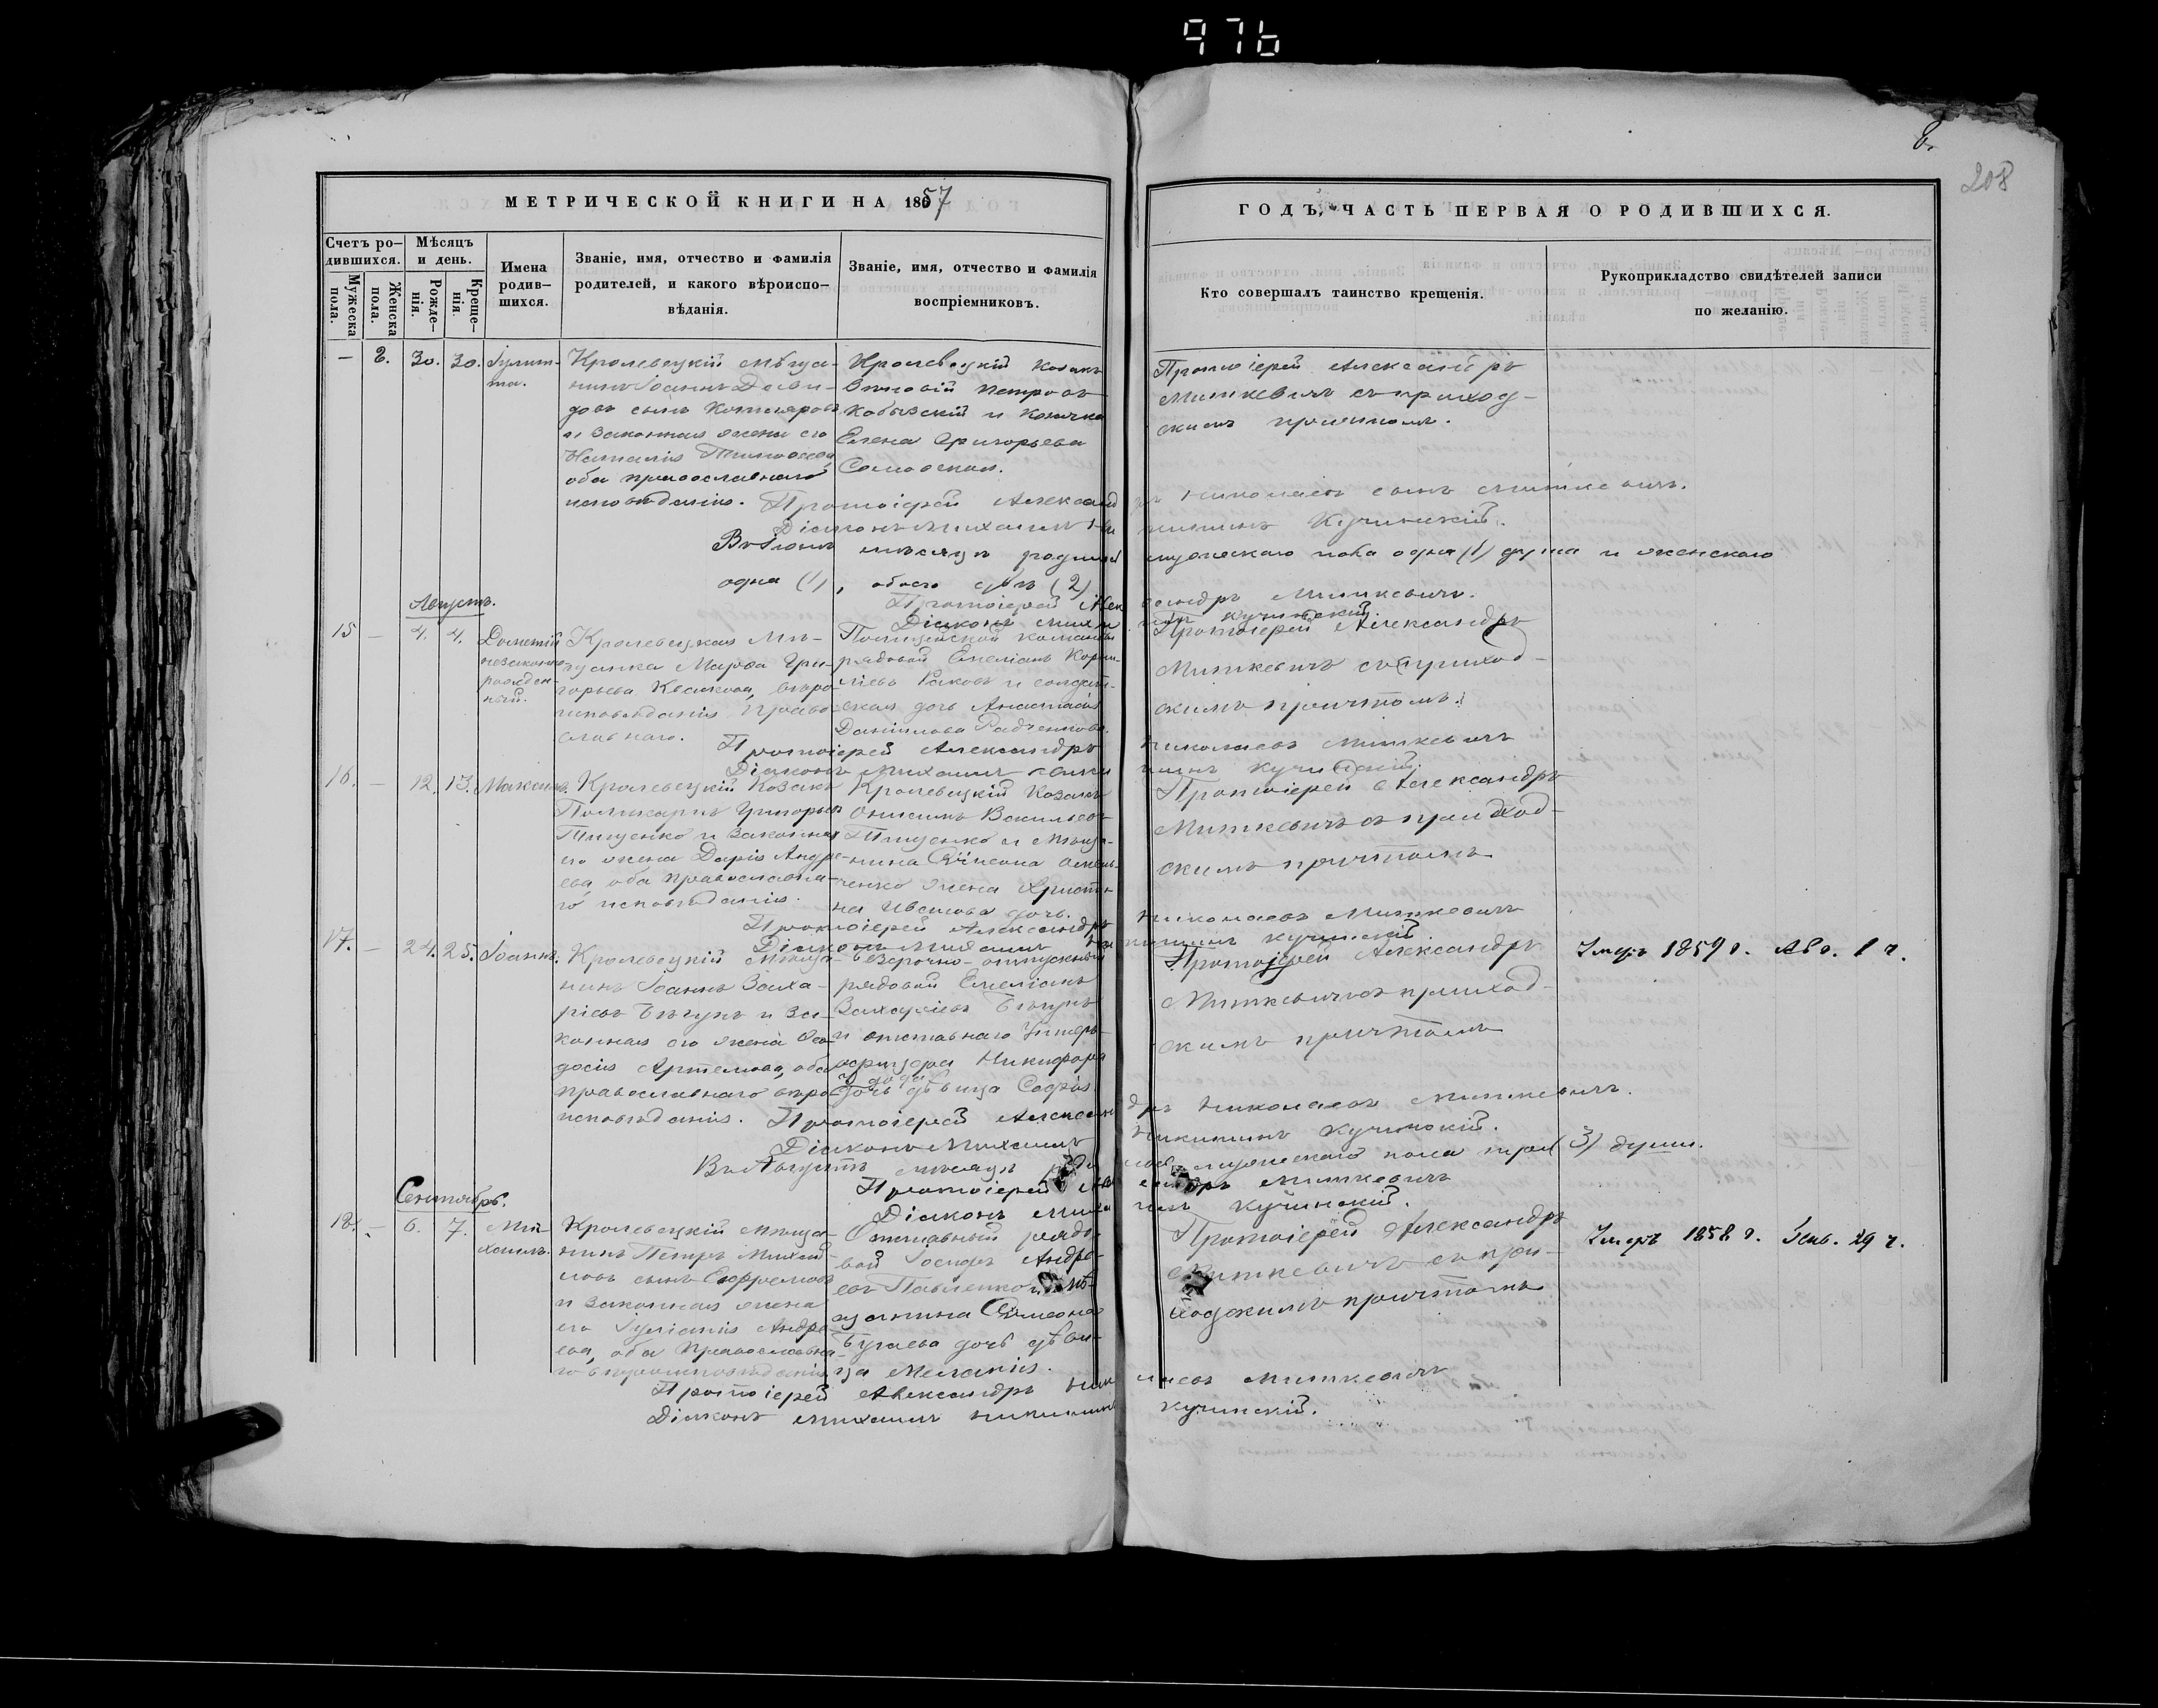 976
6.
208
МЕТРИЧЕСКОЙ КНИГИ НА 1857
ГОДЪ, ЧАСТЬ ПЕРВАЯ О РОДИВШИХСЯ.
Счетъ ро-
дившихся.
Мужеска
пола.
Женска
пола.
Мѣсяцъ
и день.
Рожде-
нія.
Креще-
нія.
Имена
родив-
шихся.
Званіе, имя, отчество и фамилія
родителей, и какого вѣроиспо-
вѣданія.
Званіе, имя, отчество и фамилія
воспріемниковъ.
Кто совершалъ таинство крещенія.
Рукоприкладство свидѣтелей записи
по желанію.
— 2. 30. 30. Іулит-
та.
Кролевецкій мѣща-
нинъ Іоаннъ Дави-
довъ сынъ
и законная жена его
Наталія
оба православнаго
исповѣданія.
Кролевецкій козакъ
Петровъ
и козачка
Елена Григорьева
Протоіерей Александръ
Миткевичъ съ приход-
скимъ причтомъ.
Протоіерей Александръ Николаевъ сынъ Миткевичъ.
Діаконъ Михаилъ Никитинъ Кучинскій.
Въ Іюлѣ мѣсяцѣ родился мужескаго пола одна (1) душа и женскаго
одна (1), обоего душъ (2)
Протоіерей Александръ Миткевичъ.
Діаконъ Михаилъ Кучинскій.
Августъ.
15 — 4. 4. Дометій
незаконно
рожден-
ный.
Кролевецкая мѣ-
щанка Марѳа Гри-
горьева вѣро-
исповѣданія право-
славнаго.
Полицейской команды
рядовой Емеліанъ Корни-
ліевъ и солдат-
ская дочь Анастасія
Даніилова Радченкова.
Протоіерей Александръ
Миткевичъ съ приход-
скимъ причтомъ.
Протоіерей Александръ Николаевъ Миткевичъ
Діаконъ Михаилъ Никитинъ Кучинскій.
16. — 12. 13. Максимъ.
Кролевецкій козакъ
Поликарпъ Григорьевъ
Тищенко и законная
его жена Дарія Андре-
ева, оба православна-
го исповѣданія.
Кролевецкій козакъ
Онисимъ Васильевъ
Тищенко и мѣща-
нина Сѵмеона
жена Христи-
на Иванова дочь.
Протоіерей Александръ
Миткевичъ съ приход-
скимъ причтомъ
Протоіерей Александръ Николаевъ Миткевичъ
Діаконъ Михаилъ Никитинъ Кучинскій
17. — 24. 25. Іоаннъ.
Кролевецкій мѣща-
нинъ Іоаннъ Заха-
ріевъ Бѣгунъ и за-
конная его жена Ѳео-
досія Артемова, оба
православнаго вѣро-
исповѣданія.
Безсрочно-отпускный
рядовой Емеліанъ
Захаріевъ Бѣгунъ
и отставнаго Унтеръ-
офицера Никифора
дочь дѣвица Софія.
Протоіерей Александръ
Миткевичъ съ приход-
скимъ причтомъ
Умеръ 1859 г. Авг. 1 ч.
Протоіерей Александръ Николаевъ Миткевичъ.
Діаконъ Михаилъ Никитинъ Кучинскій.
Въ Августѣ мѣсяцѣ родилось мужескаго пола три (3) души.
Протоіерей Александръ Миткевичъ
Діаконъ Михаилъ Кучинскій.
Сентябрь.
18. — 6. 7. Ми-
хаилъ.
Кролевецкій мѣща-
нинъ Петръ Михай-
ловъ сынъ Ефремовъ
и законная жена
его Іуліанія Андре-
ева, оба православна-
го вѣроисповѣданія
Отставный рядо-
вой Іосифъ Андре-
евъ Павленко и мѣ-
щанина Сѵмеона
Бугаева дочь дѣви-
ца Меланія.
Протоіерей Александръ
Миткевичъ съ при-
ходскимъ причтомъ
Умеръ 1858 г. Генв. 29 ч.
Протоіерей Александръ Николаевъ Миткевичъ
Діаконъ Михаилъ Никитинъ Кучинскій.